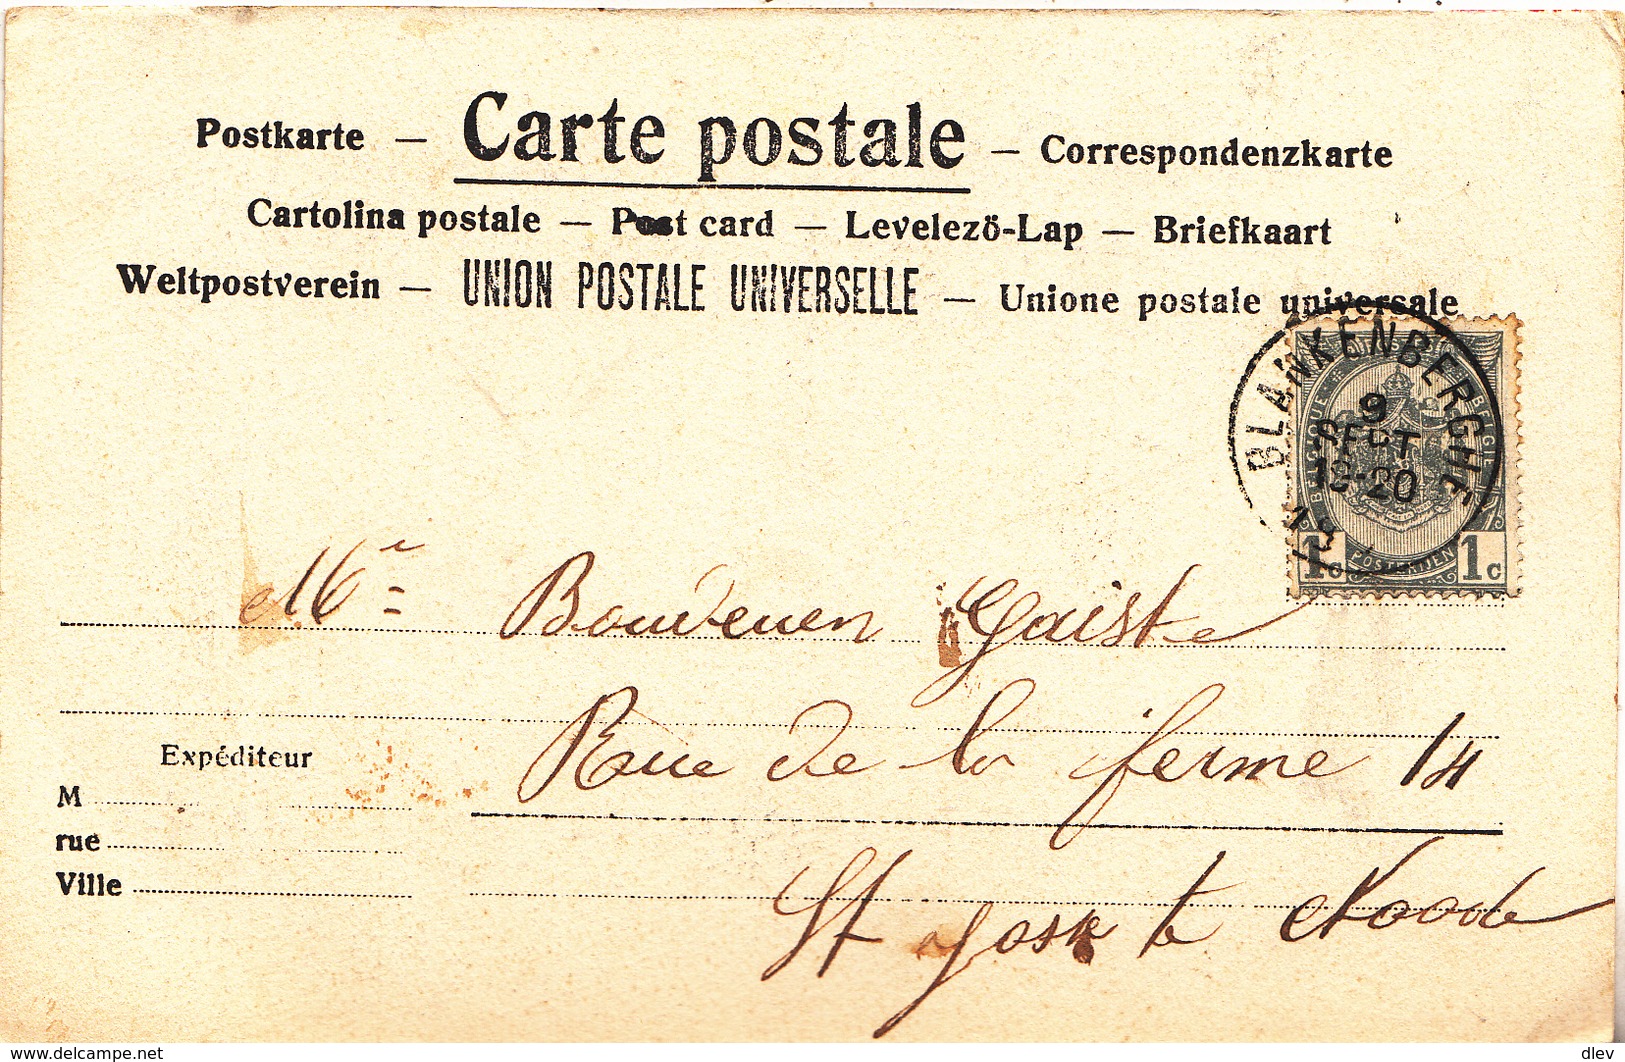 Postkarte — Carte postale — Correspondenzkarte
Cartolina postale — Post card — Levelezö-Lap — Briefkaart
Weltpostverein — UNION POSTALE UNIVERSELLE — Unione postale universale
BLANKENBERGHE
9
SEPT
18-20
BELGIQUE BELGIE
1c POSTERIJEN 1c
Gaiste
Rue de la ferme 14
St Josse te Noode
Expéditeur
M
rue
Ville
www.delcampe.net
dlev